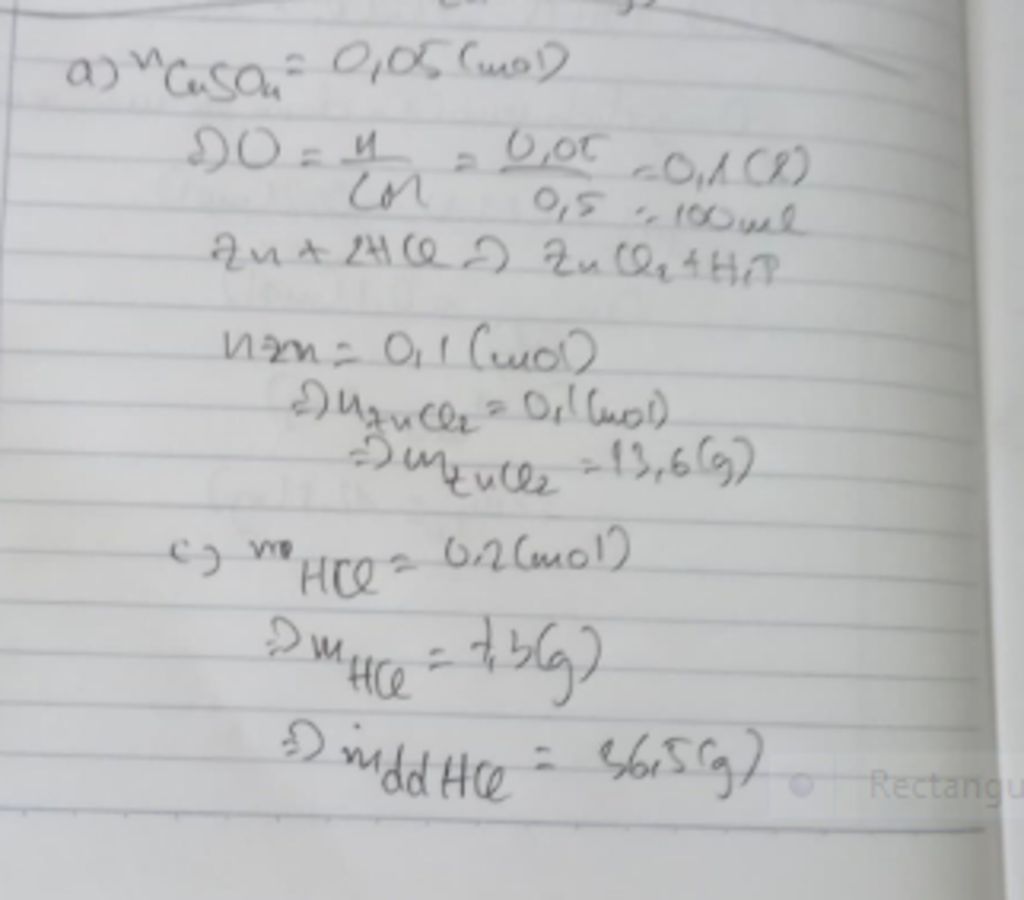 a) nCuSO4 = 0,05 (mol)
=> V = n/CM = 0,05/0,5 = 0,1 (l)
= 100ml
Zn + 2HCl => ZnCl2 + H2↑
nZn = 0,1 (mol)
=> nZnCl2 = 0,1 (mol)
=> mZnCl2 = 13,6 (g)
c) nHCl = 0,2 (mol)
=> mHCl = 7,3 (g)
=> mddHCl = 36,5 (g)
Rectangu